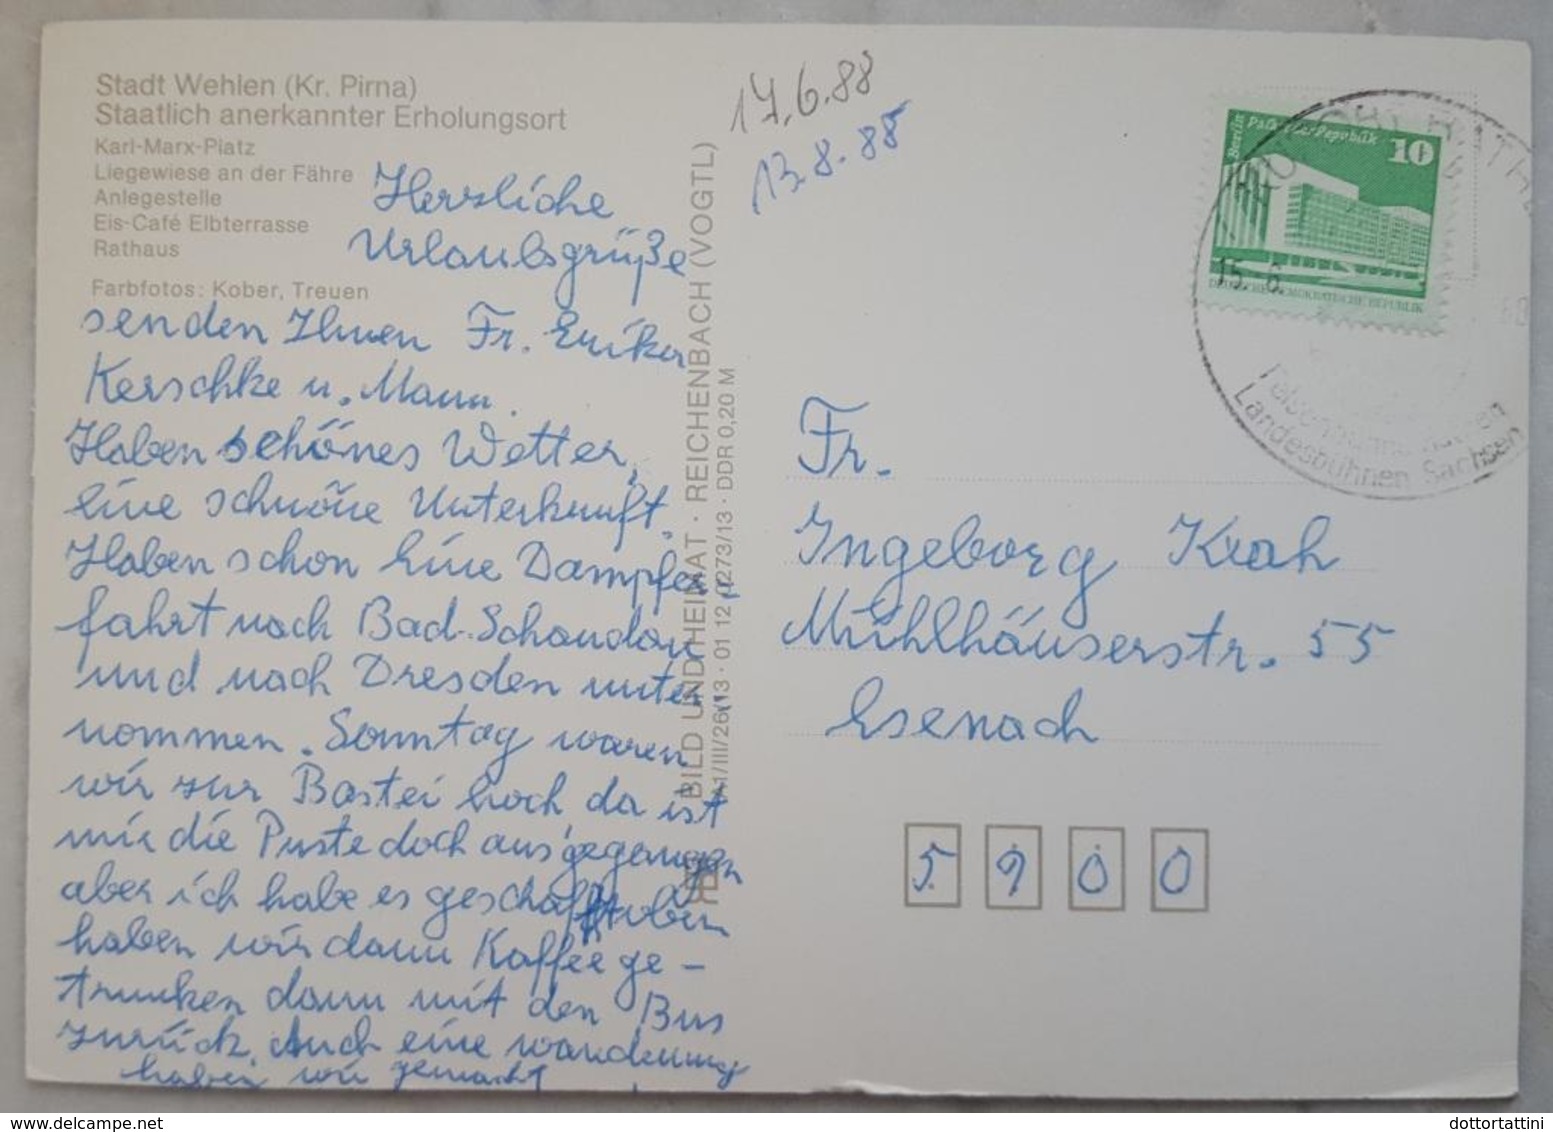 Stadt Wehlen (Kr. Pirna)
Staatlich anerkannter Erholungsort
Karl-Marx-Platz
Liegewiese an der Fähre
Anlegestelle
Eis-Café Elbterrasse
Rathaus
Farbfotos: Kober, Treuen
Herzliche
Urlaubsgrüße
senden Ihnen Fr. Erika
Kerschke u. Mann.
Haben schönes Wetter,
eine schöne Unterkunft.
Haben schon eine Dampfer
fahrt nach Bad-Schandau
und nach Dresden unter
nommen. Sonntag waren
wir zur Bastei hoch da ist
mir die Puste doch ausgegangen
aber ich habe es geschafft oben
haben wir dann Kaffee ge-
trunken dann mit den Bus
zurück. Auch eine wanderung
haben wir gemacht
BILD UND HEIMAT · REICHENBACH (VOGTL)
A1/III/26/13 · 01 12 0273/13 · DDR 0,20 M
17.6.88
13.8.88
Berlin Palast der Republik
10
DEUTSCHE DEMOKRATISCHE REPUBLIK
15. 6.
Landesbühnen Sachsen
Fr.
Ingeborg Krah
Mühlhäuserstr. 55
Esenach
5900
dottortattini
www.delcampe.net